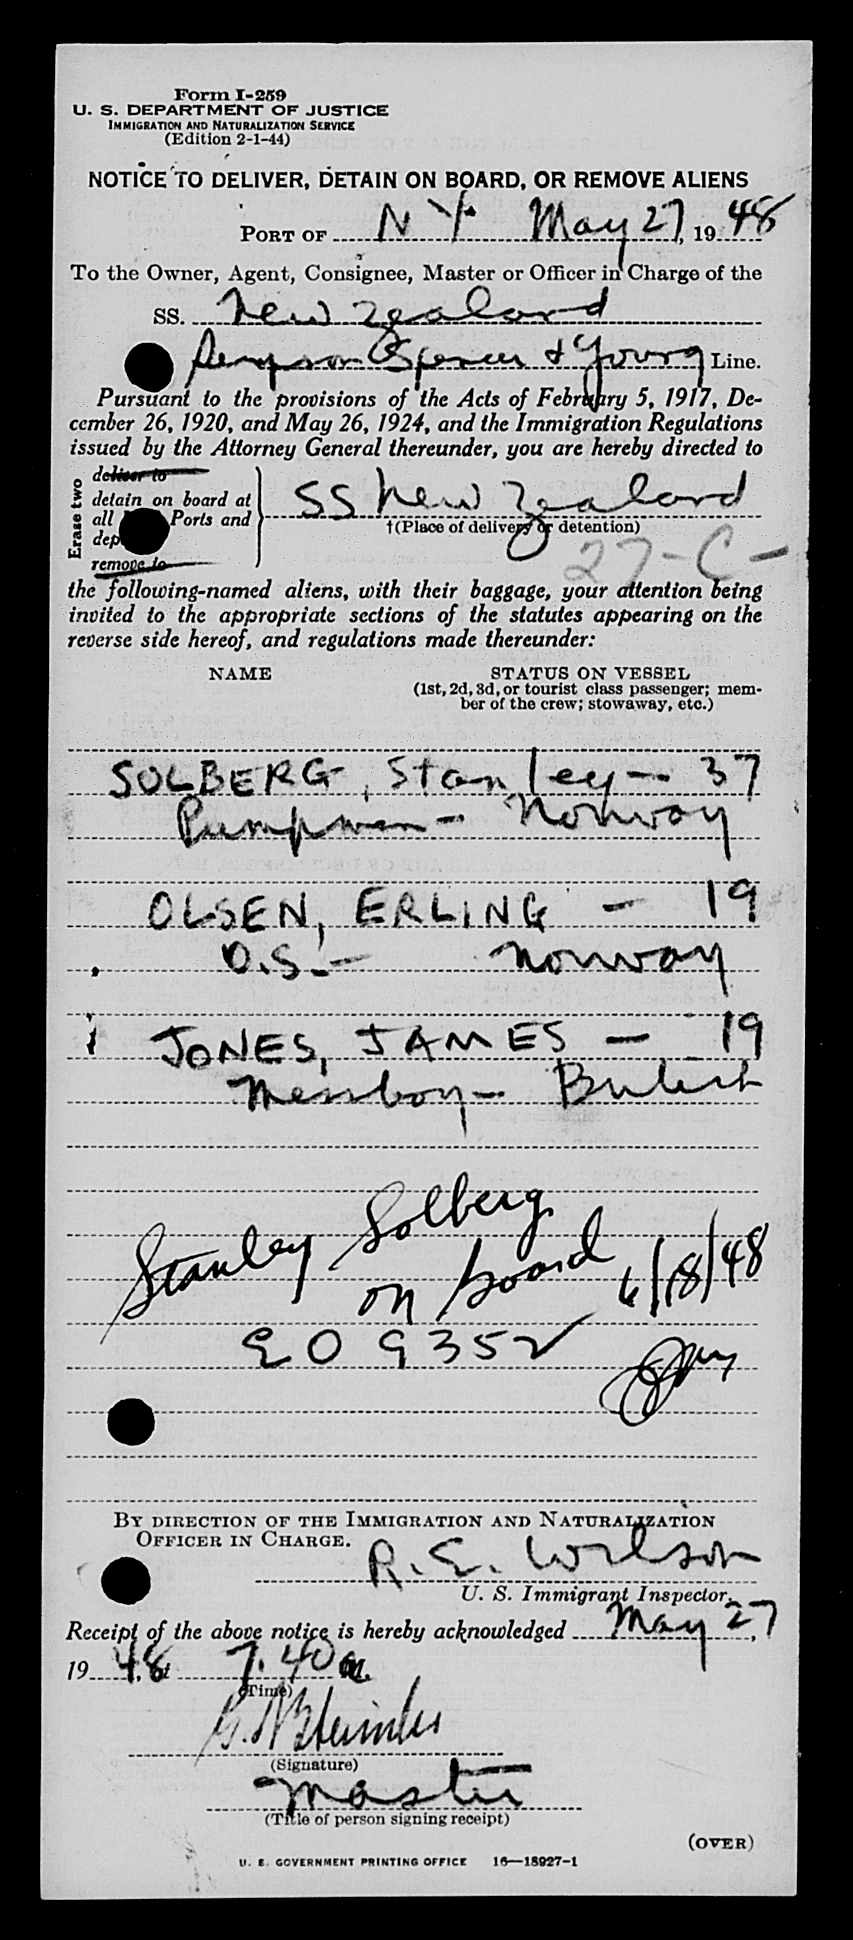 Form I-259
U. S. DEPARTMENT OF JUSTICE
IMMIGRATION AND NATURALIZATION SERVICE
(Edition 2-1-44)
NOTICE TO DELIVER, DETAIN ON BOARD, OR REMOVE ALIENS
PORT OF N Y. May 27, 1948
To the Owner, Agent, Consignee, Master or Officer in Charge of the
SS. New Zealand
Spencer & Young Line.
Pursuant to the provisions of the Acts of February 5, 1917, De-
cember 26, 1920, and May 26, 1924, and the Immigration Regulations
issued by the Attorney General thereunder, you are hereby directed to
Erase two
deliver to
detain on board at
all Ports and
dep
remove to
SS New Zealand
†(Place of delivery or detention)
27-C-
the following-named aliens, with their baggage, your attention being
invited to the appropriate sections of the statutes appearing on the
reverse side hereof, and regulations made thereunder:
NAME STATUS ON VESSEL
(1st, 2d, 3d, or tourist class passenger; mem-
ber of the crew; stowaway, etc.)
SOLBERG, Stanley - 37
Pumpman - Norway
OLSEN, ERLING - 19
O.S. - Norway
JONES, JAMES - 19
Messboy - British
Stanley Solberg
on board 6/18/48
EO 9352
BY DIRECTION OF THE IMMIGRATION AND NATURALIZATION
OFFICER IN CHARGE.
R. E. Wilson
U. S. Immigrant Inspector.
Receipt of the above notice is hereby acknowledged May 27,
1948, at 7.40 a.
(Time)
(Signature)
Master
(Title of person signing receipt)
(OVER)
U. S. GOVERNMENT PRINTING OFFICE 16—18927-1